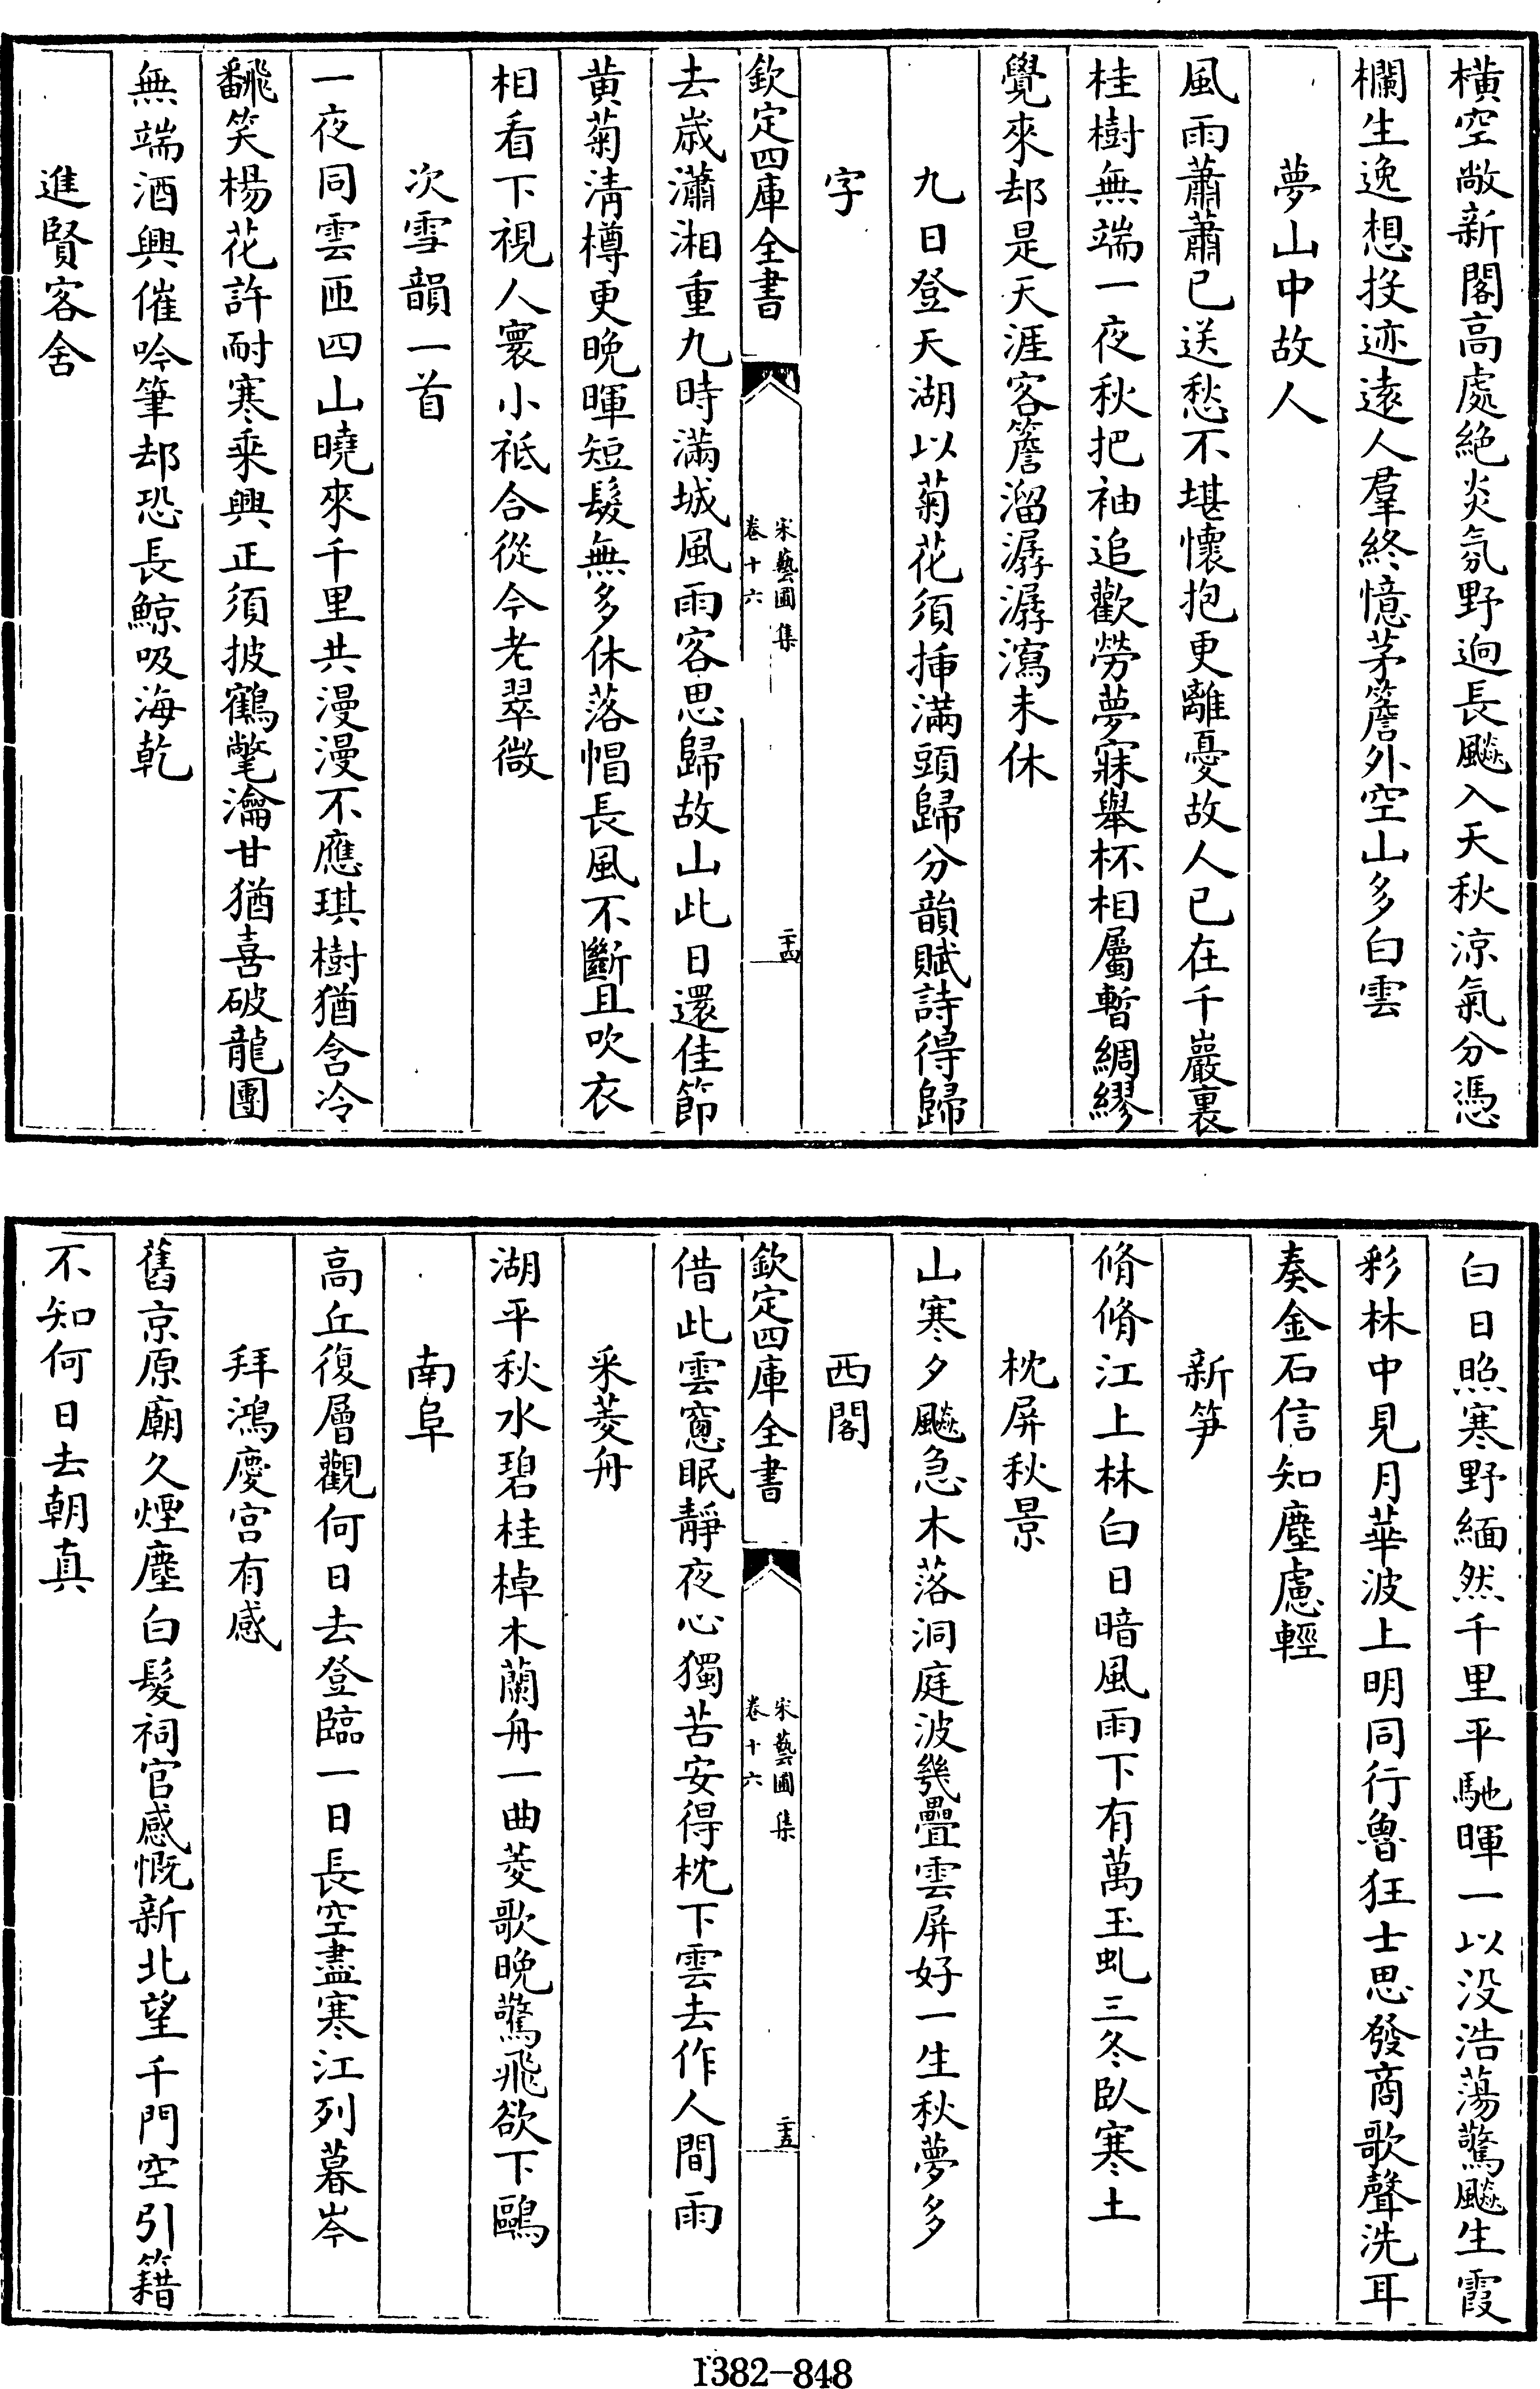 橫空敞新閣高處絶炎氛野逈長飈入天秋涼氣分憑
欄生逸想投迹遠人羣終憶茅簷外空山多白雲
夢山中故人
風雨蕭蕭已送愁不堪懷抱更離憂故人已在千巖裏
桂樹無端一夜秋把袖追歡勞夢寐舉杯相屬暫綢繆
覺來却是天涯客簷溜潺潺瀉未休
九日登天湖以菊花須揷滿頭歸分韻賦詩得歸
字
欽定四庫全書
宋藝圃集
卷十六
二十四
去歳瀟湘重九時滿城風雨客思歸故山此日還佳節
黄菊清樽更晚暉短髮無多休落帽長風不斷且吹衣
相看下視人寰小祗合從今老翠微
次雪韻一首
一夜同雲匝四山曉來千里共漫漫不應琪樹猶含冷
翻笑楊花許耐寒乘興正須披鶴氅瀹甘猶喜破龍團
無端酒興催吟筆却恐長鯨吸海乾
進賢客舍
白日照寒野緬然千里平馳暉一以没浩蕩驚飈生霞
彩林中見月華波上明同行魯狂士思發商歌聲洗耳
奏金石信知塵慮輕
新笋
脩脩江上林白日暗風雨下有萬玉虬三冬臥寒土
枕屏秋景
山寒夕飈急木落洞庭波幾疊雲屏好一生秋夢多
西閣
欽定四庫全書
宋藝圃集
卷十六
二十五
借此雲窻眠靜夜心獨苦安得枕下雲去作人間雨
采菱舟
湖平秋水碧桂棹木蘭舟一曲菱歌晚驚飛欲下鷗
南阜
高丘復層觀何日去登臨一日長空盡寒江列暮岑
拜鴻慶宫有感
舊京原廟久煙塵白髮祠官感慨新北望千門空引籍
不知何日去朝真
1382-848